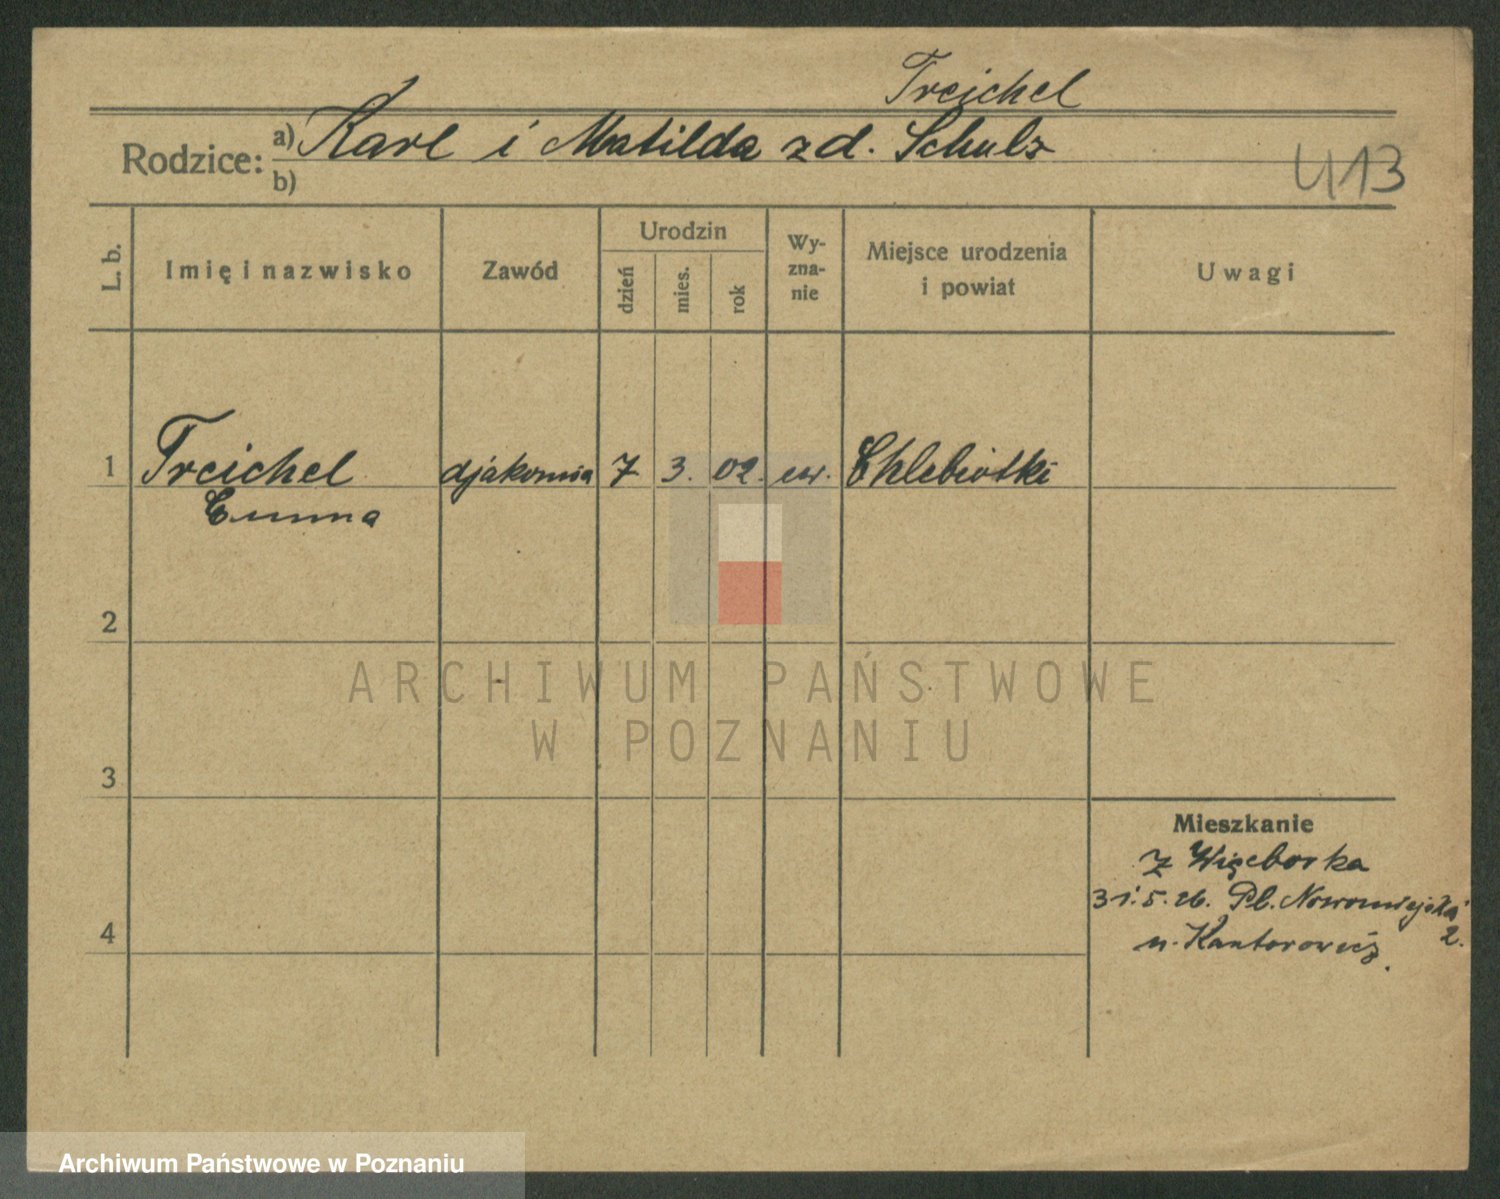 Treichel
Rodzice: a) Karl i Matilda zd. Schulz
b)
413
L. b.
Imię i nazwisko
Zawód
Urodzin
dzień
mies.
rok
Wy-
zna-
nie
Miejsce urodzenia
i powiat
Uwagi
1 Treichel djakonisa 7 3. 02. ew. Chlebiotki
Emma
2
3
4
Mieszkanie
z Więcborka
31.5.26. Pl. Nowomiejski
2.
u. Kantorowicz.
ARCHIWUM PAŃSTWOWE
W POZNANIU
Archiwum Państwowe w Poznaniu